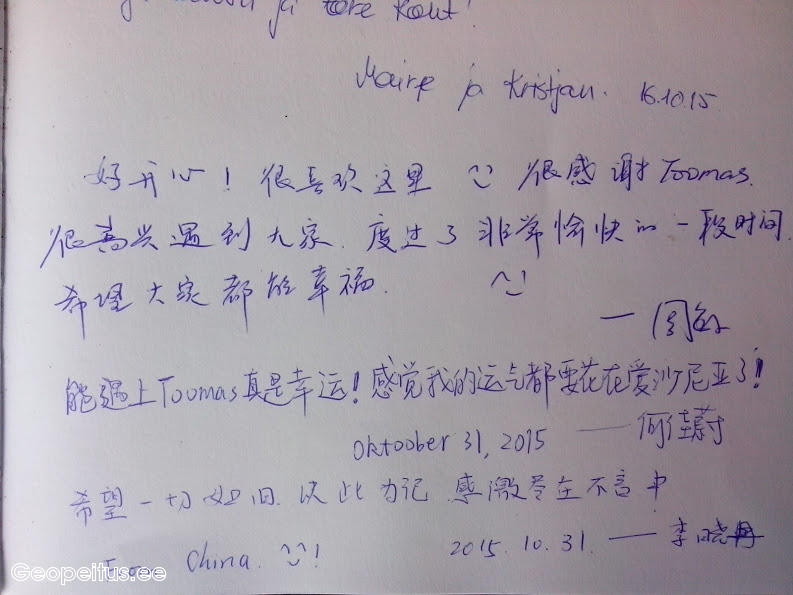 ja tore koht!
Maire ja Kristjan. 16.10.15
好开心！很喜欢这里 很感谢Toomas.
很高兴遇到大家. 度过了非常愉快的一段时间.
希望大家都能幸福.
— 周
能遇上Toomas真是幸运！感觉我的运气都要花在爱沙尼亚了！
Oktoober 31, 2015 —— 何佳蔚
希望一切如旧. 以此为记 感激尽在不言中
From China. !
2015.10.31. —— 李晓冉
Geopeitus.ee